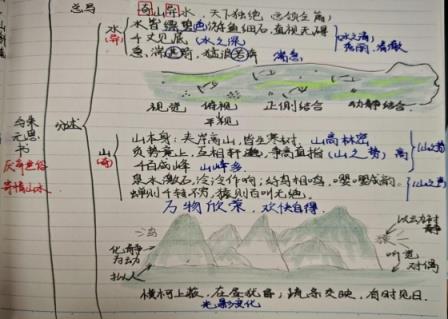 总写
奇山异水 天下独绝 总领全篇
水 水皆缥碧 游鱼细石 直视无碍
(异) 千丈见底 (水之深) 水之清
急湍甚箭,猛浪若奔 湍急
视觉 俯视 正侧结合 动静结合
平视
与朱元思书
分述
厌弃世俗
寄情山水
山 山本身:夹岸高山,皆生寒树 山高林密
(奇) 负势竞上,互相轩邈,争高直指 (山之势) 高
千百成峰 山峰多
泉水激石,泠泠作响;好鸟相鸣,嘤嘤成韵。
蝉则千转不穷,猿则百叫无绝。
万物欣荣,欢快自得。
以动衬静
化静为动
拟人
听觉
对偶
横柯上蔽,在昼犹昏;疏条交映,有时见日。
光影变化